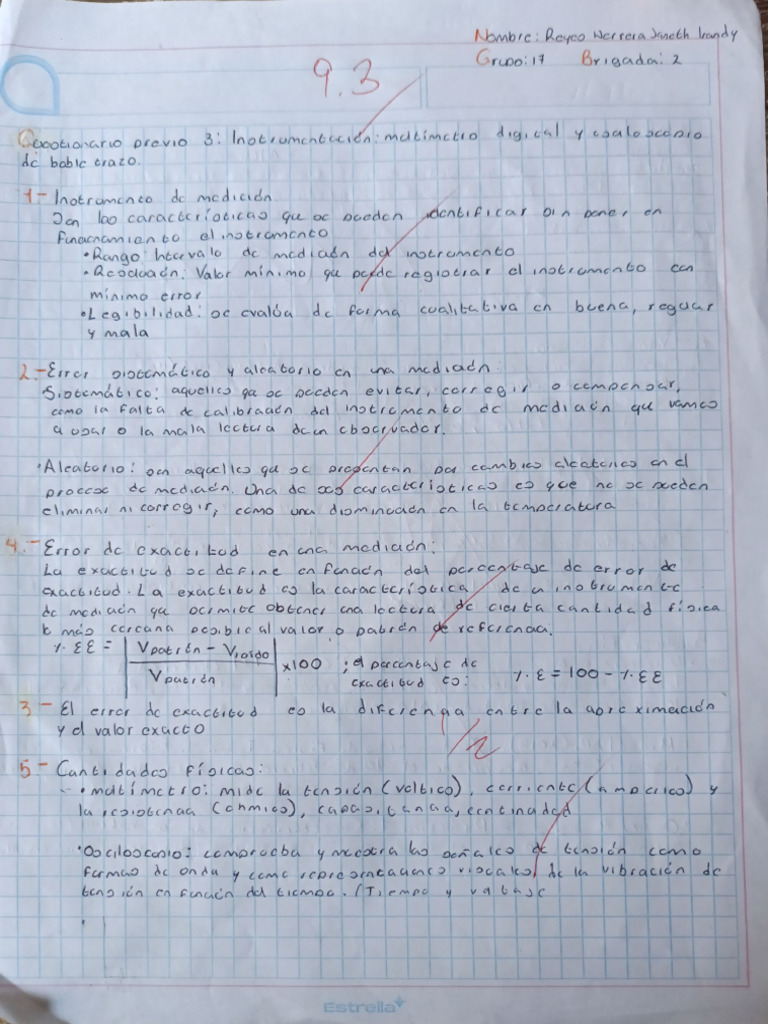 Nombre: Reyes Herrera Janeth Irandy
Grupo: 17 Brigada: 2
9.3
Cuestionario previo 3: Instrumentación: multímetro digital y osciloscopio
de doble trazo.
1- Instrumento de medición
Son las características que se pueden identificar sin poner en
funcionamiento el instrumento
• Rango: Intervalo de medición del instrumento
• Resolución: Valor mínimo que puede registrar el instrumento con
mínimo error
• Legibilidad: se evalúa de forma cualitativa en buena, regular
y mala
2.- Error sistemático y aleatorio en una medición:
Sistemático: aquellos que se pueden evitar, corregir o compensar,
como la falta de calibración del instrumento de medición que vamos
a usar o la mala lectura de un observador.
• Aleatorio: son aquellos que se presentan por cambios aleatorios en el
proceso de medición. Una de sus características es que no se pueden
eliminar ni corregir, como una disminución en la temperatura
4.- Error de exactitud en una medición:
La exactitud se define en función del porcentaje de error de
exactitud. La exactitud es la característica de un instrumento
de medición que permite obtener una lectura de cierta cantidad física
lo más cercana posible al valor o patrón de referencia.
%EE = | Vpatrón - Vleído / Vpatrón | x100 ; el porcentaje de
exactitud es: %E = 100 - %EE
3- El error de exactitud es la diferencia entre la aproximación
y el valor exacto
/2
5- Cantidades físicas:
• multímetro: mide la tensión (voltios), corriente (amperios) y
la resistencia (ohmios), capacitancia, continuidad
• Osciloscopio: comprueba y muestra las señales de tensión como
formas de onda y como representaciones visuales de la vibración de
tensión en función del tiempo. (Tiempo y voltaje
•
Estrella